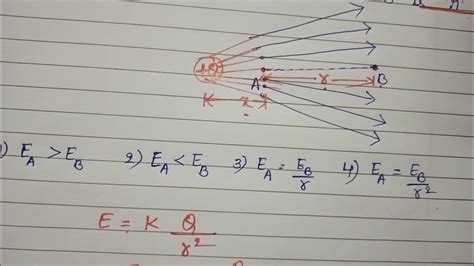 +Q
A
r
B
K x
1) E_A > E_B 2) E_A < E_B 3) E_A = E_B/r 4) E_A = E_B/r²
E = K Q/r²